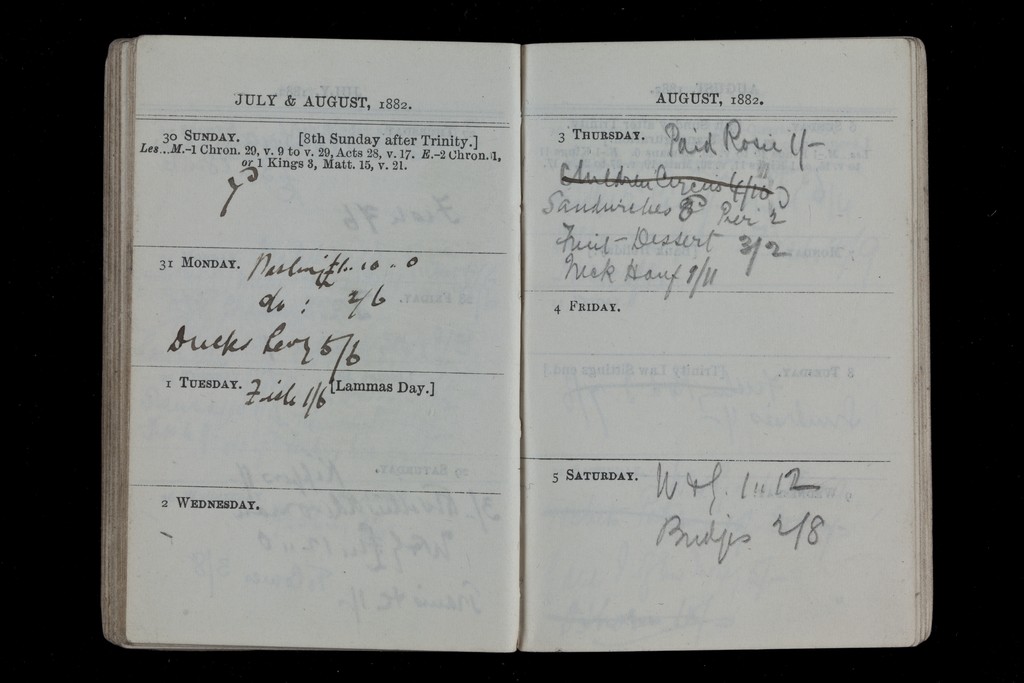 JULY & AUGUST, 1882.
30 SUNDAY. [8th Sunday after Trinity.]
Les... M.-1 Chron. 29, v. 9 to v. 29, Acts 28, v. 17. E.-2 Chron. 1,
or 1 Kings 3, Matt. 15, v. 21.
31 MONDAY. 10 .. 0
do : 2/6
Ducks 5/6
1 TUESDAY. Fish 1/6 [Lammas Day.]
2 WEDNESDAY.
AUGUST, 1882.
3 THURSDAY. Paid Rosie 1/-
Children Circus 4/10
Sandwiches Pier 2
Fruit - Dessert 3/2
Neck 9/11
4 FRIDAY.
5 SATURDAY. W & G. 1 " 12
Bridges 2/8